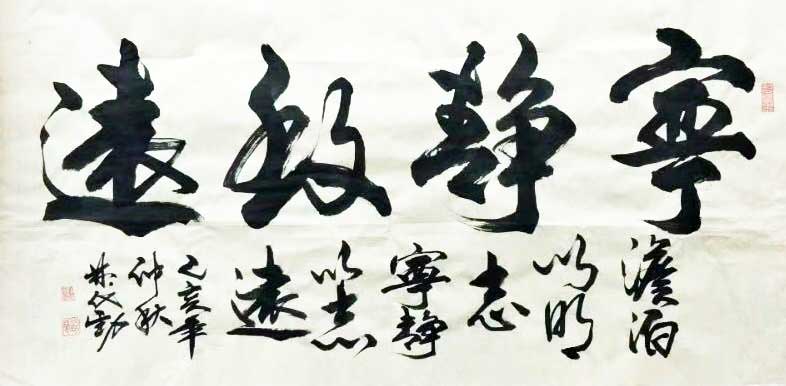 寧靜致遠
澹泊
以明
志
寧靜
以志
遠
亥年
仲秋